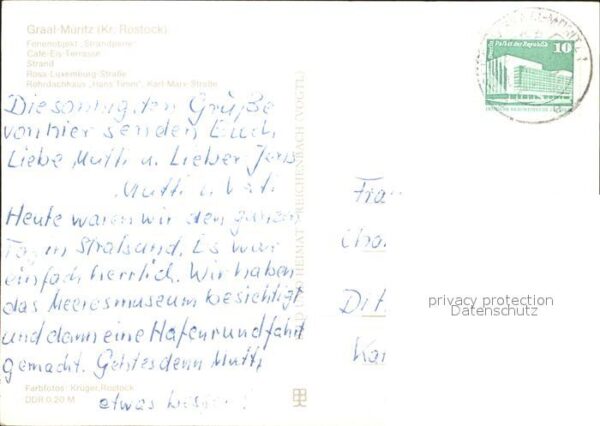 Graal-Müritz (Kr. Rostock)
Ferienobjekt „Strandperle"
Café-Eis-Terrasse
Strand
Rosa-Luxemburg-Straße
Rohrdachhaus „Hans Timm", Karl-Marx-Straße
Die sonnigsten Grüße
von hier senden Euch
Liebe Mutti u. Lieber Jens
Mutti u. Vati
Heute waren wir den ganzen
Tag in Stralsund. Es war
einfach herrlich. Wir haben
das Meeresmuseum besichtigt
und dann eine Hafenrundfahrt
gemacht. Geht es denn Mutti
etwas besser?
Farbfotos: Krüger, Rostock
DDR 0,20 M
BILD UND HEIMAT REICHENBACH (VOGTL)
Palast der Republik
10
Frau
Dit
Kar
privacy protection
Datenschutz